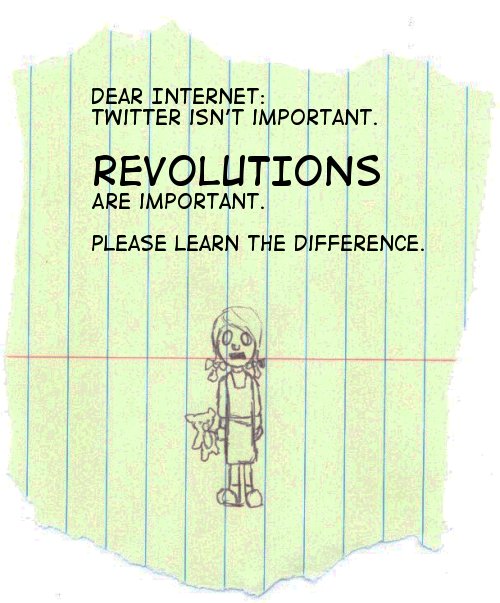 DEAR INTERNET:
TWITTER ISN'T IMPORTANT.
REVOLUTIONS
ARE IMPORTANT.
PLEASE LEARN THE DIFFERENCE.